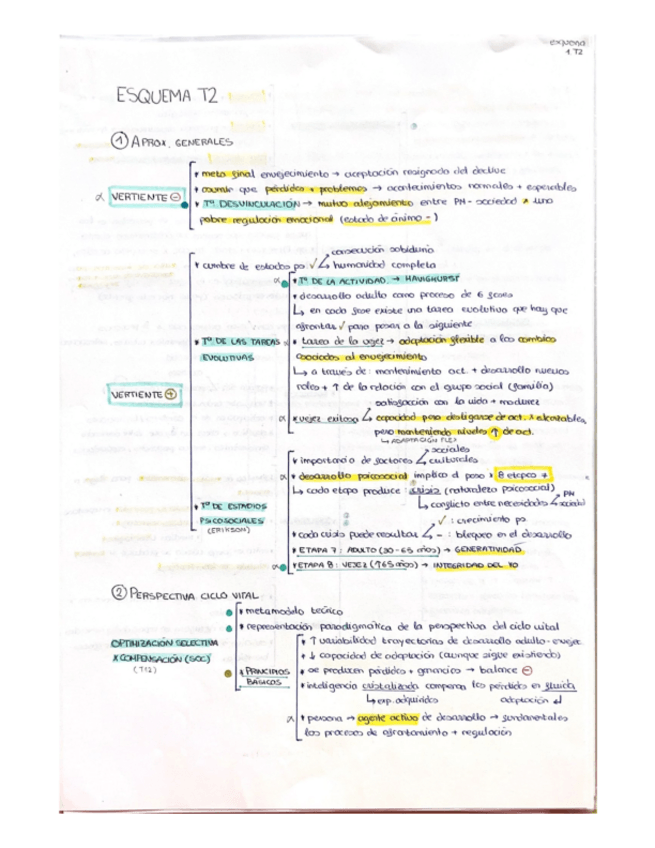 esquema
1 T2
ESQUEMA T2
① APROX. GENERALES
* meta final envejecimiento → aceptación resignada del declive
* asumir que pérdidas + problemas → acontecimientos normales + esperables
α VERTIENTE ⊖
* Tª DESVINCULACIÓN → mutuo alejamiento entre PM - sociedad x una
pobre regulación emocional (estado de ánimo -)
consecución sabiduría
* cumbre de estados po. √ humanidad completa
α * Tª DE LA ACTIVIDAD → HAVIGHURST
* desarrollo adulto como proceso de 6 fases
↳ en cada fase existe una tarea evolutiva que hay que
afrontar √ para pasar a la siguiente
* Tª DE LAS TAREAS EVOLUTIVAS
* tarea de la vejez → adaptación flexible a los cambios
asociados al envejecimiento
↳ a través de: mantenimiento act. + desarrollo nuevos
roles + ↑ de la relación con el grupo social (familia)
VERTIENTE ⊕
satisfacción con la vida + madurez
α * vejez exitosa capacidad para desligarse de act. x alcanzables
pero manteniendo niveles ↑ de act.
↳ ADAPTACIÓN FLEX
* importancia de factores sociales
culturales
α * desarrollo psicosocial implica el paso x 8 etapas +
↳ cada etapa produce: crisis (naturaleza psicosocial)
↳ conflicto entre necesidades PM
sociedad
* Tª DE ESTADIOS
PSICOSOCIALES
(ERIKSON)
√ : crecimiento pa
* cada crisis puede resultar - : bloqueo en el desarrollo
* ETAPA 7: ADULTO (30-65 años) → GENERATIVIDAD
α * ETAPA 8: VEJEZ (↑65 años) → INTEGRIDAD DEL YO
② PERSPECTIVA CICLO VITAL
* metamodelo teórico
* representación paradigmática de la perspectiva del ciclo vital
OPTIMIZACIÓN SELECTIVA
X COMPENSACIÓN (SOC)
(T12)
* PRINCIPIOS
BÁSICOS
* ↑ variabilidad trayectorias de desarrollo adulto-vejez
* ↓ capacidad de adaptación (aunque sigue existiendo)
* se producen pérdidas + ganancias → balance ⊖
* inteligencia cristalizada compensa las pérdidas en fluida
↳ exp. adquiridas adaptación
α * persona → agente activo de desarrollo → fundamentales
los procesos de afrontamiento + regulación